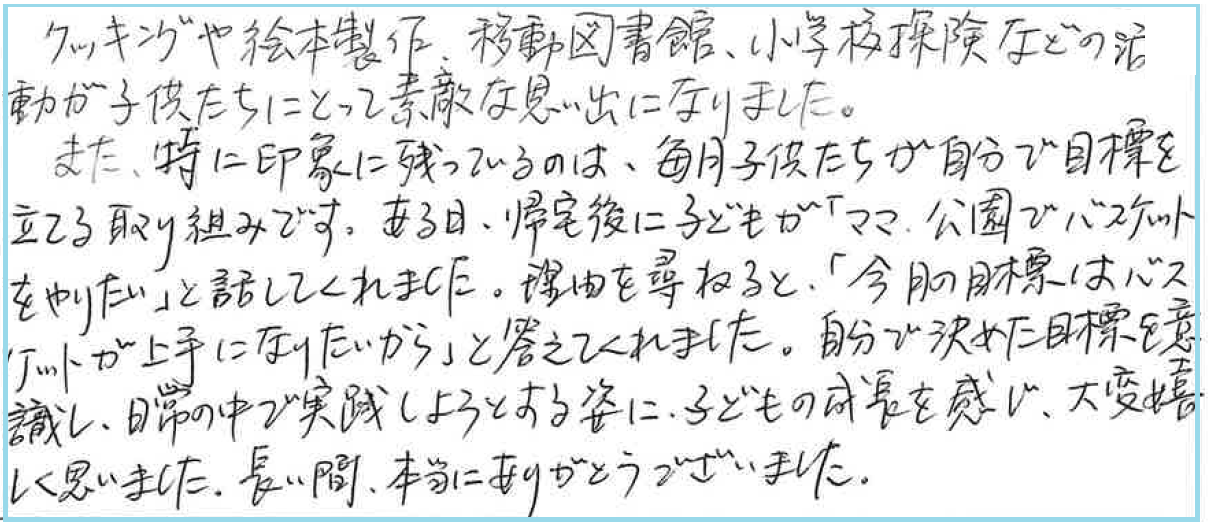 クッキングや絵本製作、移動図書館、小学校探険などの活
動が子供たちにとって素敵な思い出になりました。
また、特に印象に残っているのは、毎月子供たちが自分で目標を
立てる取り組みです。ある日、帰宅後に子どもが「ママ、公園でバスケット
をやりたい」と話してくれました。理由を尋ねると、「今月の目標はバス
ケットが上手になりたいから」と答えてくれました。自分で決めた目標を意
識し、日常の中で実践しようとする姿に、子どもの成長を感じ、大変嬉
しく思いました。長い間、本当にありがとうございました。